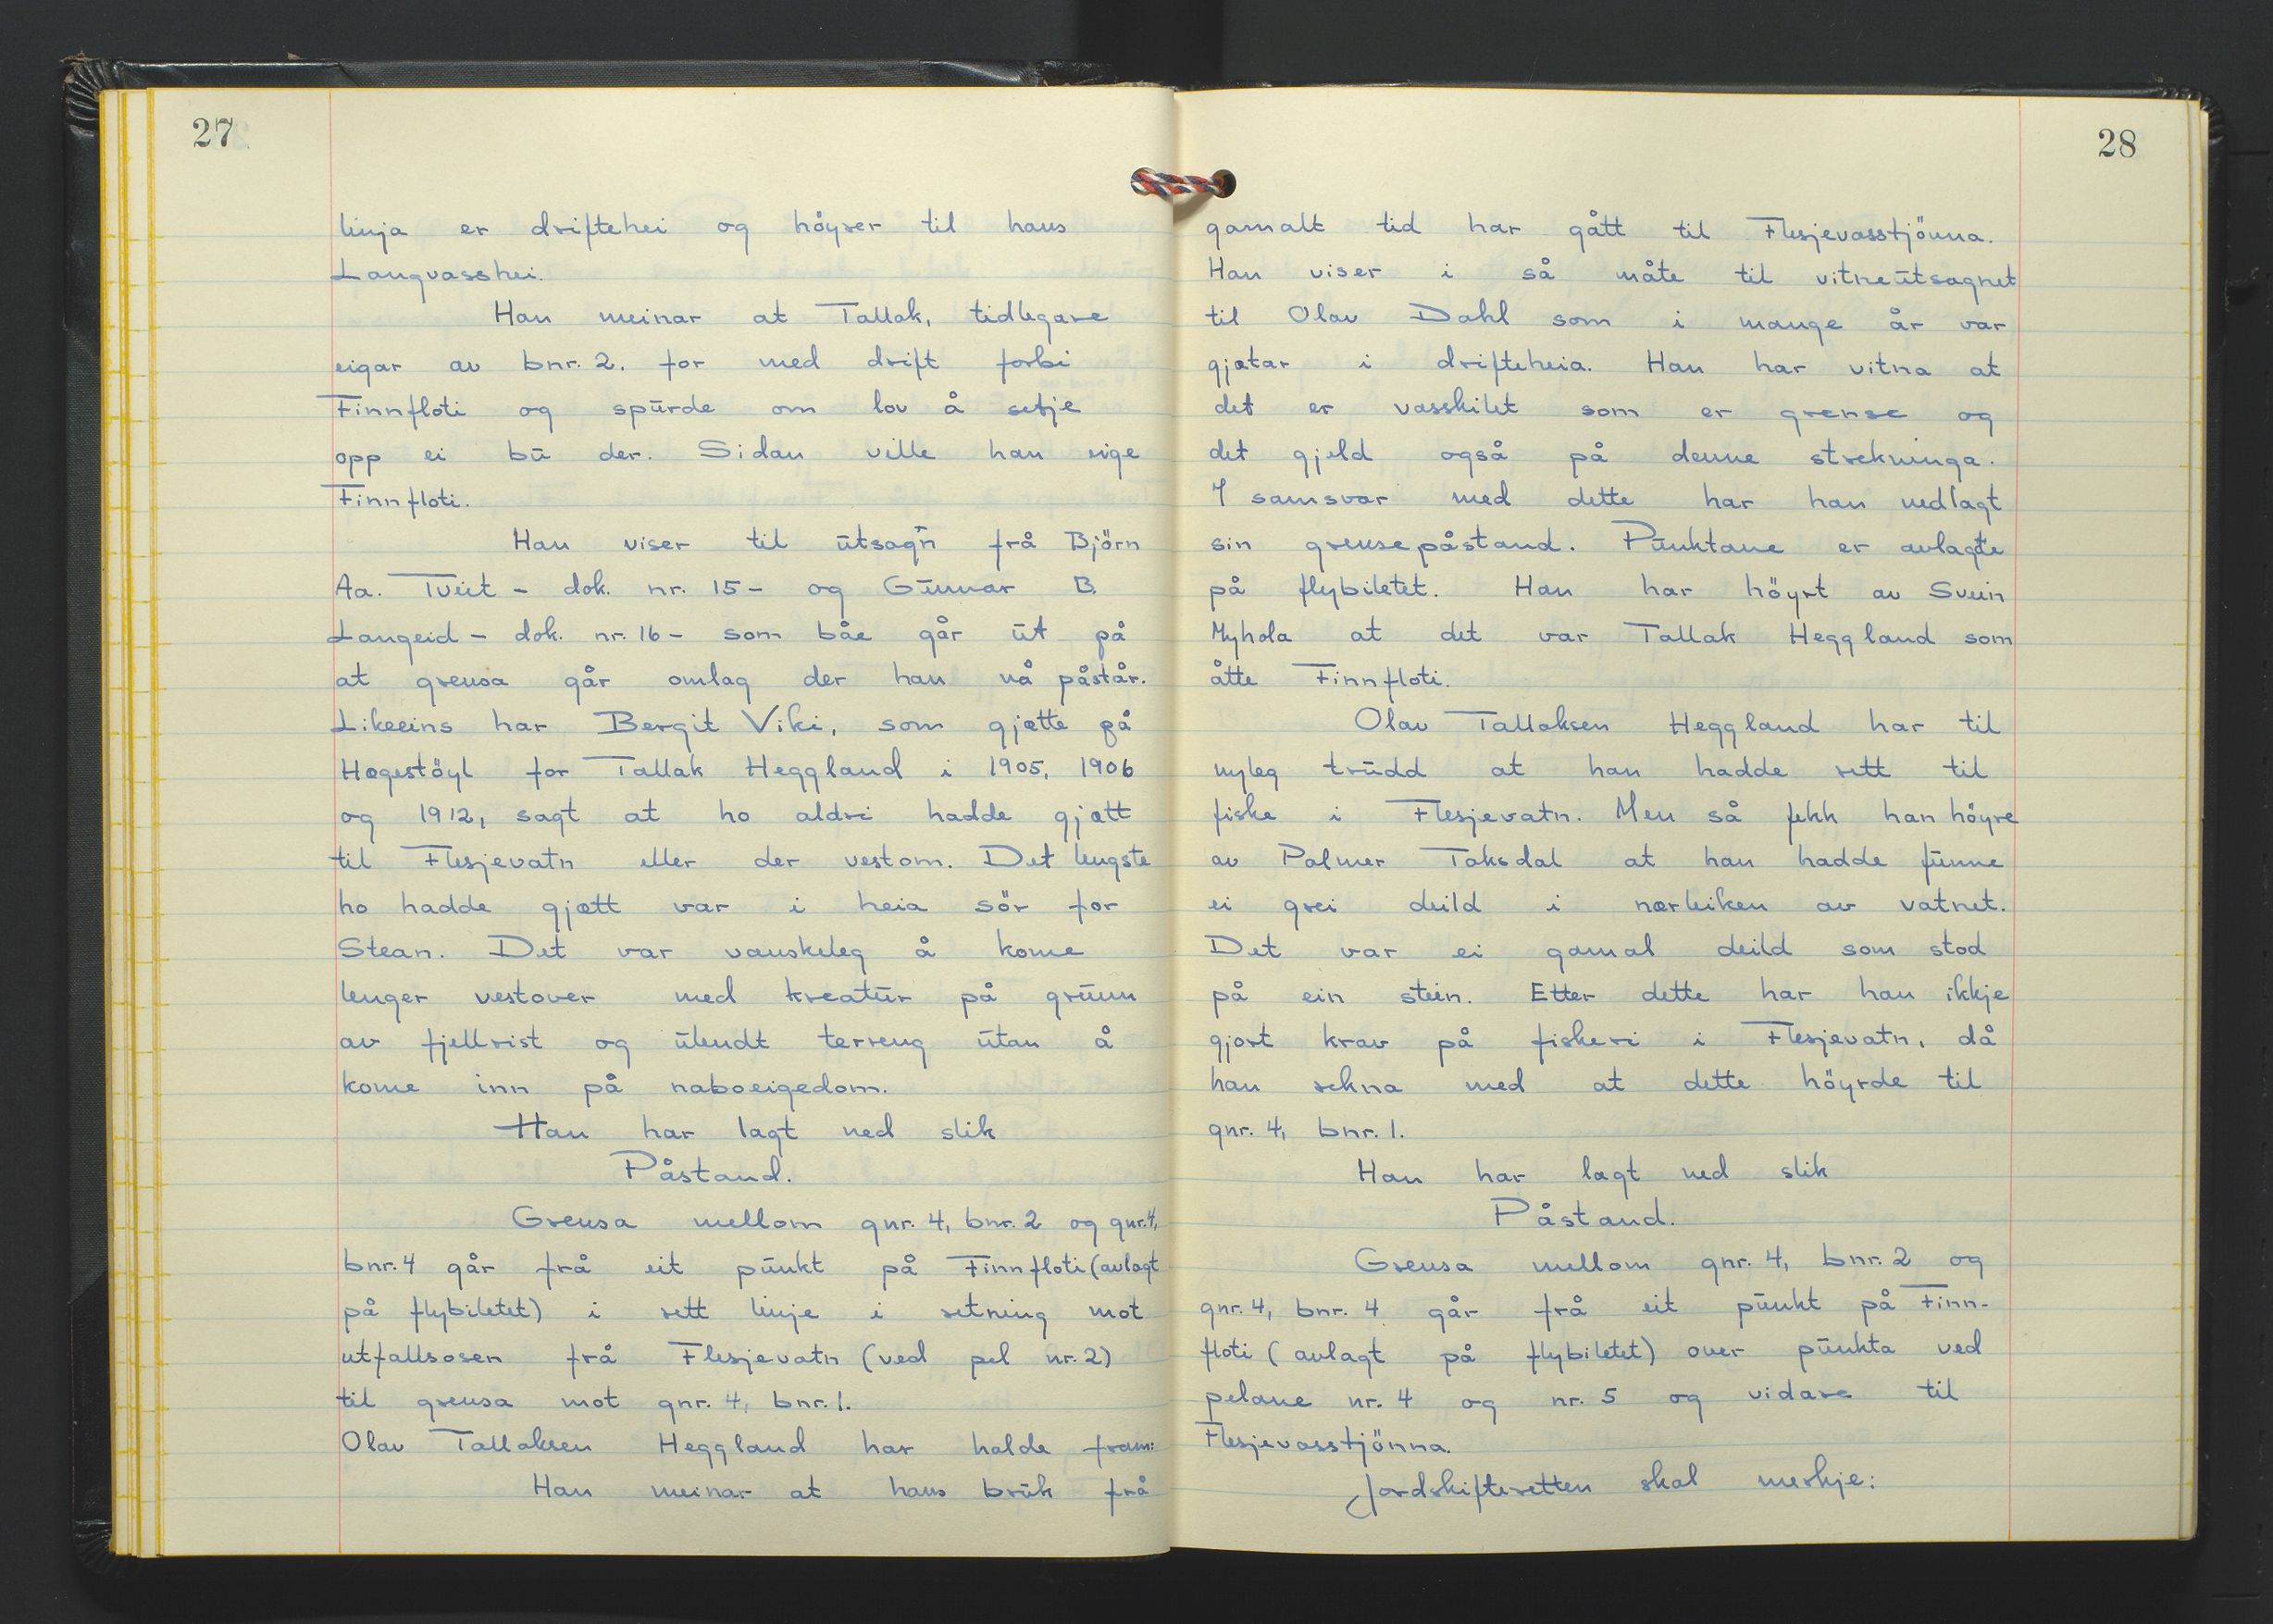 27
linja er driftehei og höyrer til hans
Langvasshei.
Han meinar at Tallak, tidlegare
eigar av bnr. 2. for med drift forbi
Finnfloti og spurde om lov å setje
opp ei bu der. Sidan ville han eige
Finnfloti.
Han viser til utsagn frå Björn
Aa. Tveit - dok. nr. 15 - og Gunnar B.
Langeid - dok. nr. 16 - som båe går ut på
at grensa går omlag der han nå påstår.
Likeeins har Bergit Viki, som gjætte på
Hægestöyl for Tallak Heggland i 1905, 1906
og 1912, sagt at ho aldri hadde gjætt
til Flesjevatn eller der vestom. Det lengste
ho hadde gjætt var i heia sör for
Stean. Det var vanskeleg å kome
lenger vestover med kreatur på grunn
av fjellrist og ulendt terreng utan å
kome inn på naboeigedom.
Han har lagt ned slik
Påstand.
Grensa mellom gnr. 4, bnr. 2 og gnr. 4,
bnr. 4 går frå eit punkt på Finnfloti (avlagt
på flybiletet) i rett linje i retning mot
utfallsosen frå Flesjevatn (ved pel nr. 2)
til grensa mot gnr. 4, bnr. 1.
Olav Tallaksen Heggland har halde fram:
Han meinar at hans bruk frå
28
gamalt tid har gått til Flesjevasstjönna.
Han viser i så måte til vitneutsagnet
til Olav Dahl som i mange år var
gjætar i drifteheia. Han har vitna at
det er vasskilet som er grense og
det gjeld også på denne strekninga.
I samsvar med dette har han nedlagt
sin grensepåstand. Punktane er avlagte
på flybiletet. Han har höyrt av Svein
Myhola at det var Tallak Heggland som
åtte Finnfloti.
Olav Tallaksen Heggland har til
nyleg trudd at han hadde rett til
fiske i Flesjevatn. Men så fekk han höyre
av Palmer Taksdal at han hadde funne
ei grei deild i nærleiken av vatnet.
Det var ei gamal deild som stod
på ein stein. Etter dette har han ikkje
gjort krav på fiskeri i Flesjevatn, då
han rekna med at dette höyrde til
gnr. 4, bnr. 1.
Han har lagt ned slik
Påstand.
Grensa mellom gnr. 4, bnr. 2 og
gnr. 4, bnr. 4 går frå eit punkt på Finn-
floti (avlagt på flybiletet) over punkta ved
pelane nr. 4 og nr. 5 og vidare til
Flesjevasstjönna.
Jordskifteretten skal merkje: